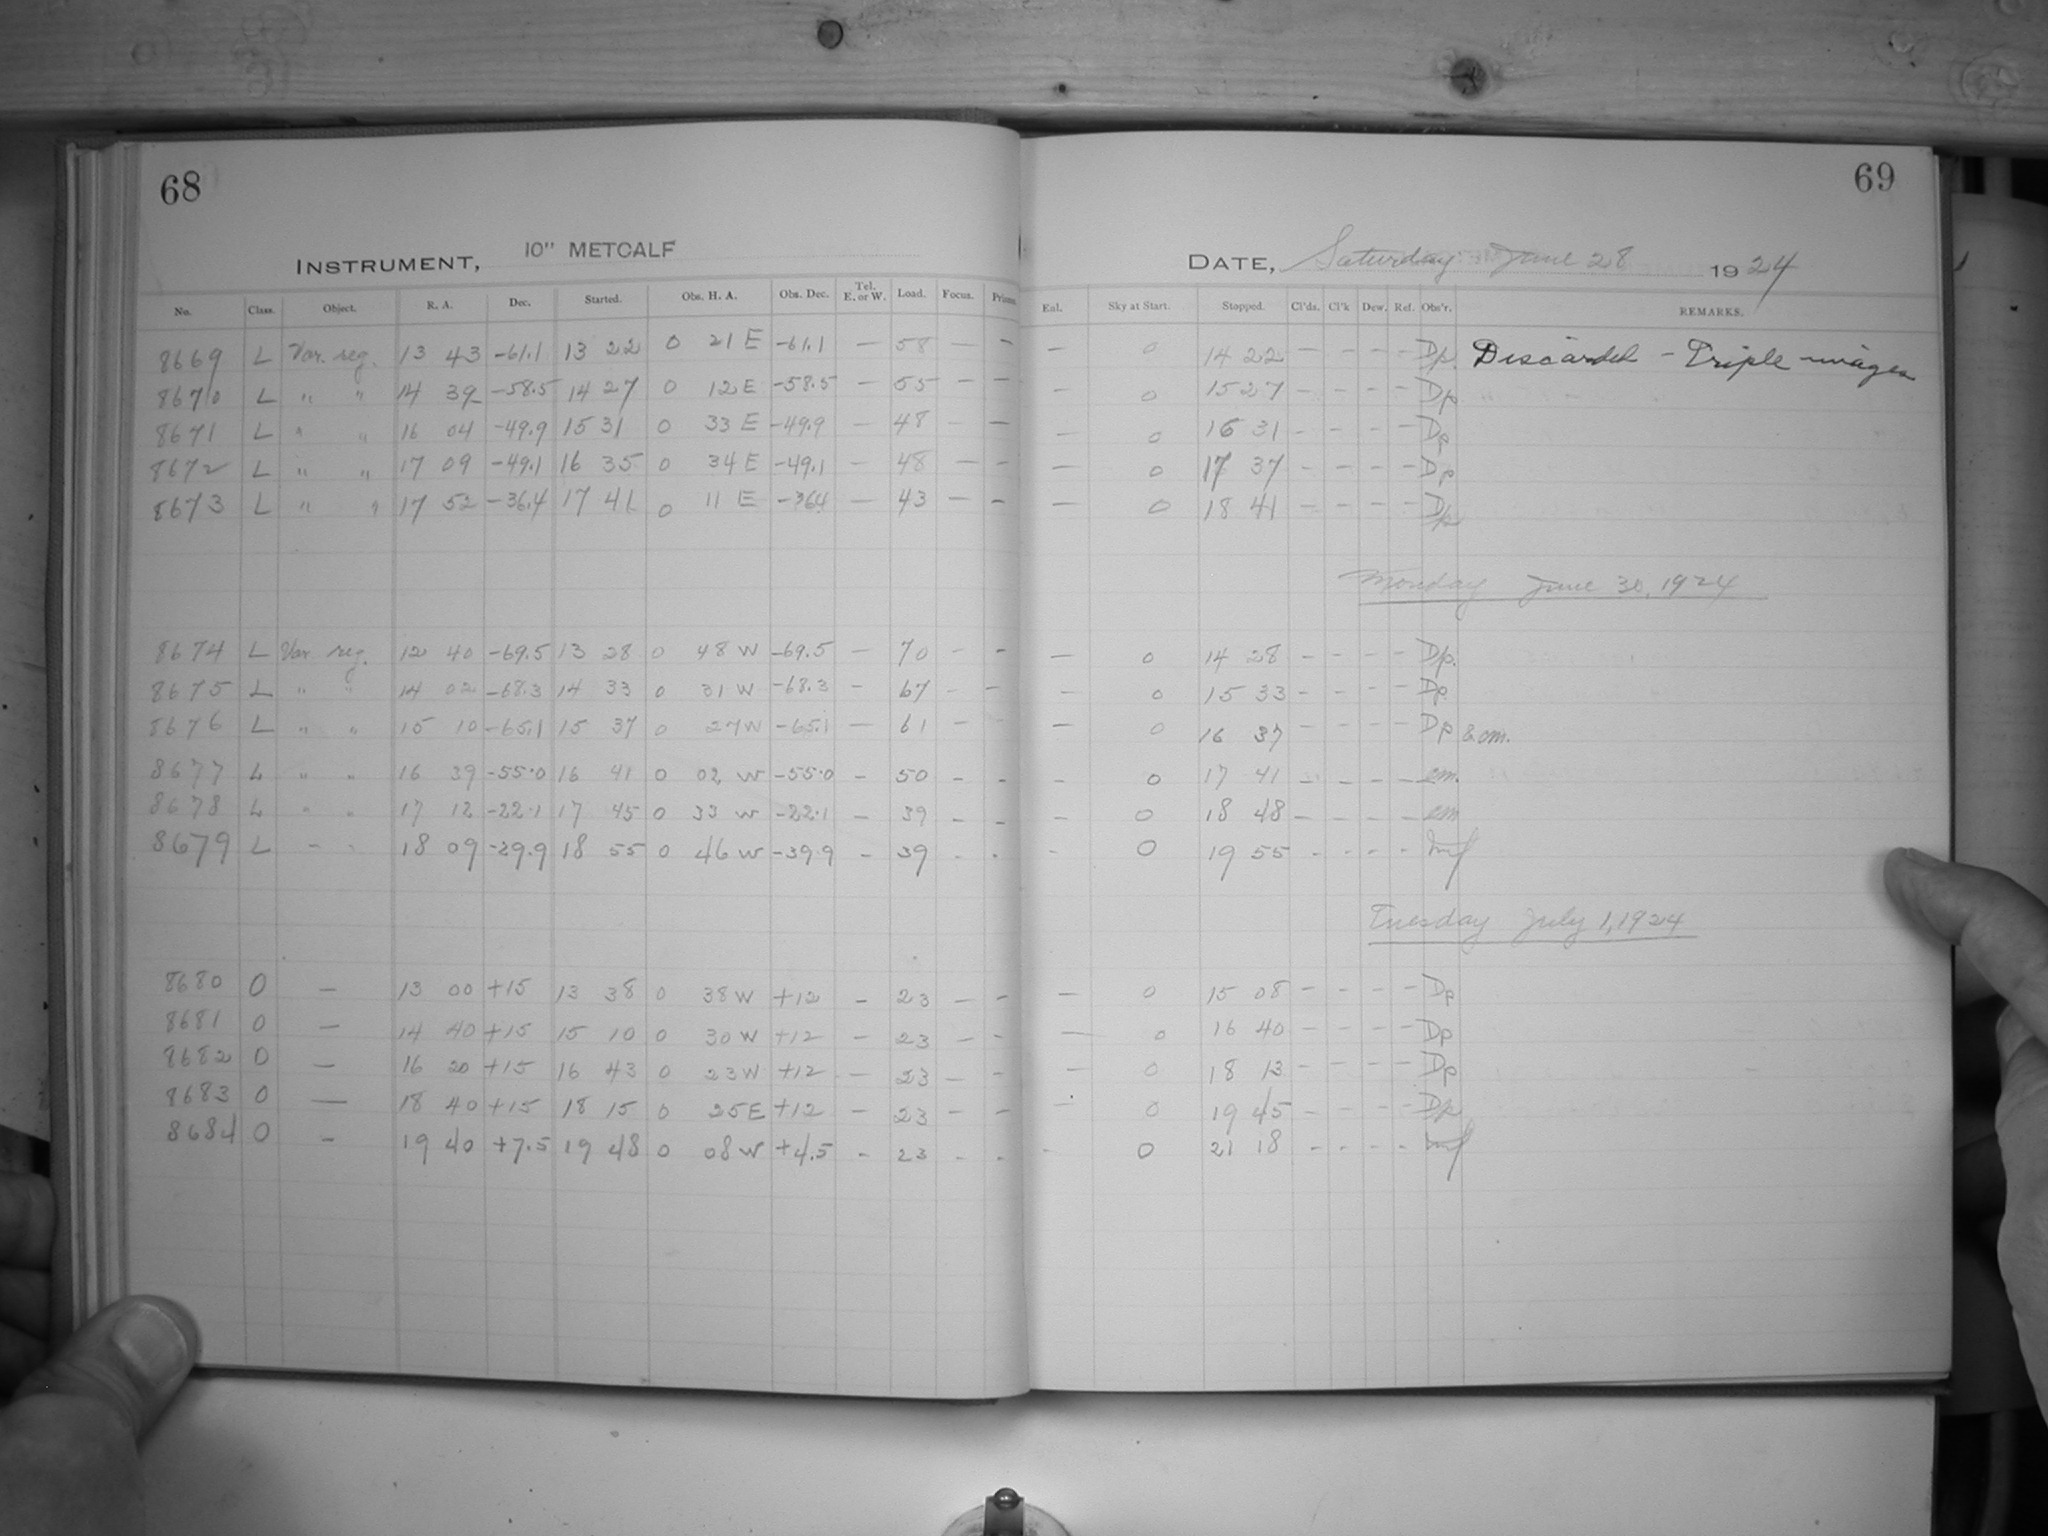 68
69
INSTRUMENT, 10" METCALF
DATE, Saturday June 28 1924
No. Class. Object. R. A. Dec. Started. Obs. H. A. Obs. Dec. Tel. E. or W. Load. Focus. Prisms Enl. Sky at Start. Stopped. Cl'ds. Cl'k Dew. Ref. Obs'r. REMARKS.
8669 L Var. reg. 13 43 -61.1 13 22 0 21 E -61.1 — 58 — — — 0 14 22 — — — — Dp. Discarded - Triple images
8670 L " " 14 39 -58.5 14 27 0 12 E -58.5 — 55 — — — 0 15 27 — — — — Dp
8671 L " " 16 04 -49.9 15 31 0 33 E -49.9 — 48 — — — 0 16 31 — — — — Dp
8672 L " " 17 09 -49.1 16 35 0 34 E -49.1 — 48 — — — 0 17 37 — — — — Dp
8673 L " " 17 52 -36.4 17 41 0 11 E -36.4 — 43 — — — 0 18 41 — — — — Dp
Monday June 30, 1924
8674 L Var reg. 12 40 -69.5 13 28 0 48 W -69.5 — 70 — — — 0 14 28 — — — — Dp.
8675 L " " 14 02 -68.3 14 33 0 31 W -68.3 — 67 — — — 0 15 33 — — — — Dp
8676 L " " 15 10 -65.1 15 37 0 27 W -65.1 — 61 — — — 0 16 37 — — — — Dp & om.
8677 L " " 16 39 -55.0 16 41 0 02 W -55.0 — 50 — — — 0 17 41 — — — — om.
8678 L " " 17 12 -22.1 17 45 0 33 W -22.1 — 39 — — — 0 18 48 — — — — om
8679 L " " 18 09 -29.9 18 55 0 46 W -39.9 — 39 — — — 0 19 55 — — — — mf
Tuesday July 1, 1924
8680 O — 13 00 +15 13 38 0 38 W +12 — 23 — — — 0 15 08 — — — — Dp
8681 O — 14 40 +15 15 10 0 30 W +12 — 23 — — — 0 16 40 — — — — Dp
8682 O — 16 20 +15 16 43 0 23 W +12 — 23 — — — 0 18 13 — — — — Dp
8683 O — 18 40 +15 18 15 0 25 E +12 — 23 — — — 0 19 45 — — — — Dp
8684 O — 19 40 +7.5 19 48 0 08 W +4.5 — 23 — — — 0 21 18 — — — — mf